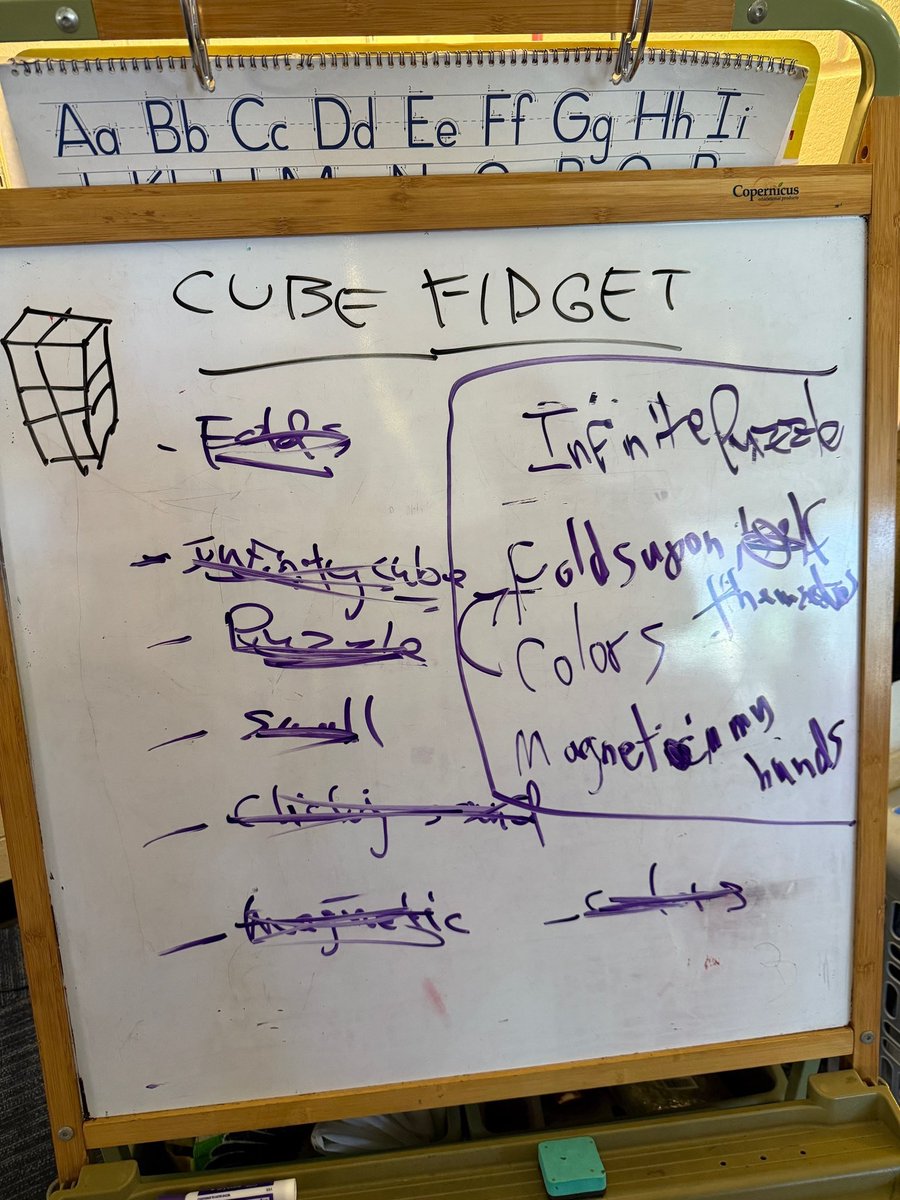 Aa Bb Cc Dd Ee Ff Gg Hh Ii
Copernicus
educational products
CUBE FIDGET
- Folds
- Infinity cube
- Puzzle
- Small
- Clicking sound
- Imagnetic
- colors
Infinite Puzzle
Folds upon
themselves
Colors
Magnetic in my
hands